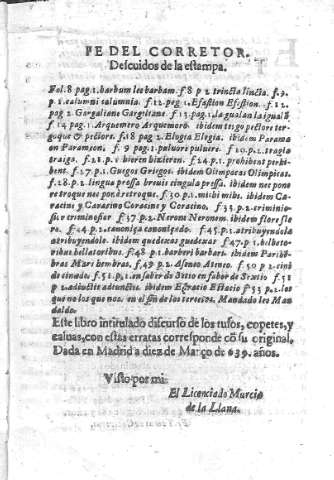 FE DEL CORRETOR.
Descuidos de la estampa.
Fol. 8 pag. 1. barbum lee barbam. f. 8 p 2 trincta lincta. f. 9.
p. 1. calumni calumnia. f. 12. pag. 1. Efastion Efestion. f. 12.
pag 2. Gargaliane Gargiltane. f. 13. pag. 1. la gualan la iguala
f. 14 pag. 1. Arquemero Arquemoro. ibidem tergo pectore ter-
goque & pectore. f. 18 pag 2. Elogia Elegia. ibidem Parama
on Paramson. f. 9 pag. 1. puluers puluere. f. 20 p. 2. tragla
traiga. f. 21. p. 1 bieren hizieren. f. 24. p. 1. prohibent perhi-
bent. f. 27. p. 1. Guegos Griegos. ibidem Olimpacas Olimpicas.
f. 28. p. 2. lingua pressa breuis cingula pressa. ibidem nec pone
retroque nec pone retroque. f. 30. p. 1. mihi mibi. ibidem Ca-
racino y Caracino Coracino y Coracino. f. 35. p. 2. criminio-
sis e criminoser f. 37. p. 2. Nerone Neronem. ibidem flore fle
re. f. 44 p. 2. canoniça canonigado. f. 45. p. 1. atribuyendola
atribuyendolo. ibidem quedexas guedexas f. 47. p. 1. bilbeto-
ribus bellatoribus. f. 48 p. 1. barberi barbari. ibidem Parihe-
bras Mari hembras. f. 49 p. 2. Aseneo Ateneo. f. 50 p 2. cine
de cinado. f. 51. p. 1. en sabor de Setio en fabor de Sextio f. 51
p 2. adiunctie adiunctis. ibidem Egracio Estacio f. 53 p. 2. los
que no los que nos. en el fin de los tercetos. Mandado les Man
daldo.
Este libro intitulado discurso de los tufos, copetes, y
caluas, con estas erratas corresponde cō su original.
Dada en Madrid a diez de Março de 639. años.
Visto por mi.
El Licenciado Murcia
de la Llana.